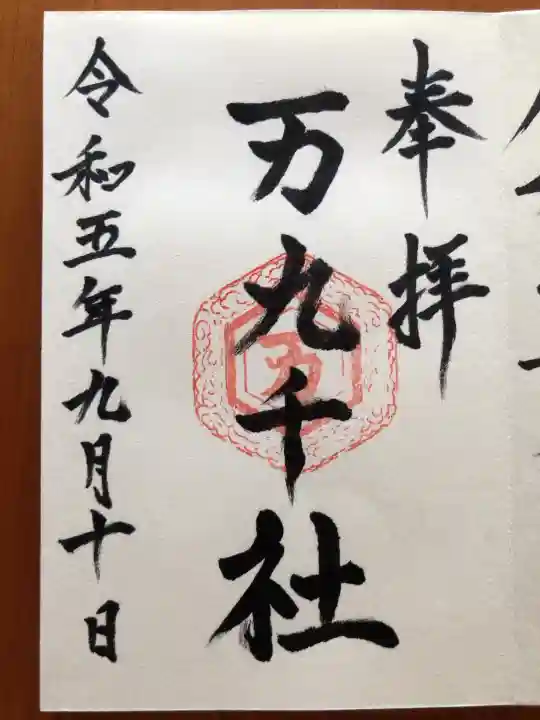 奉拝
万九千社
令和五年九月十日